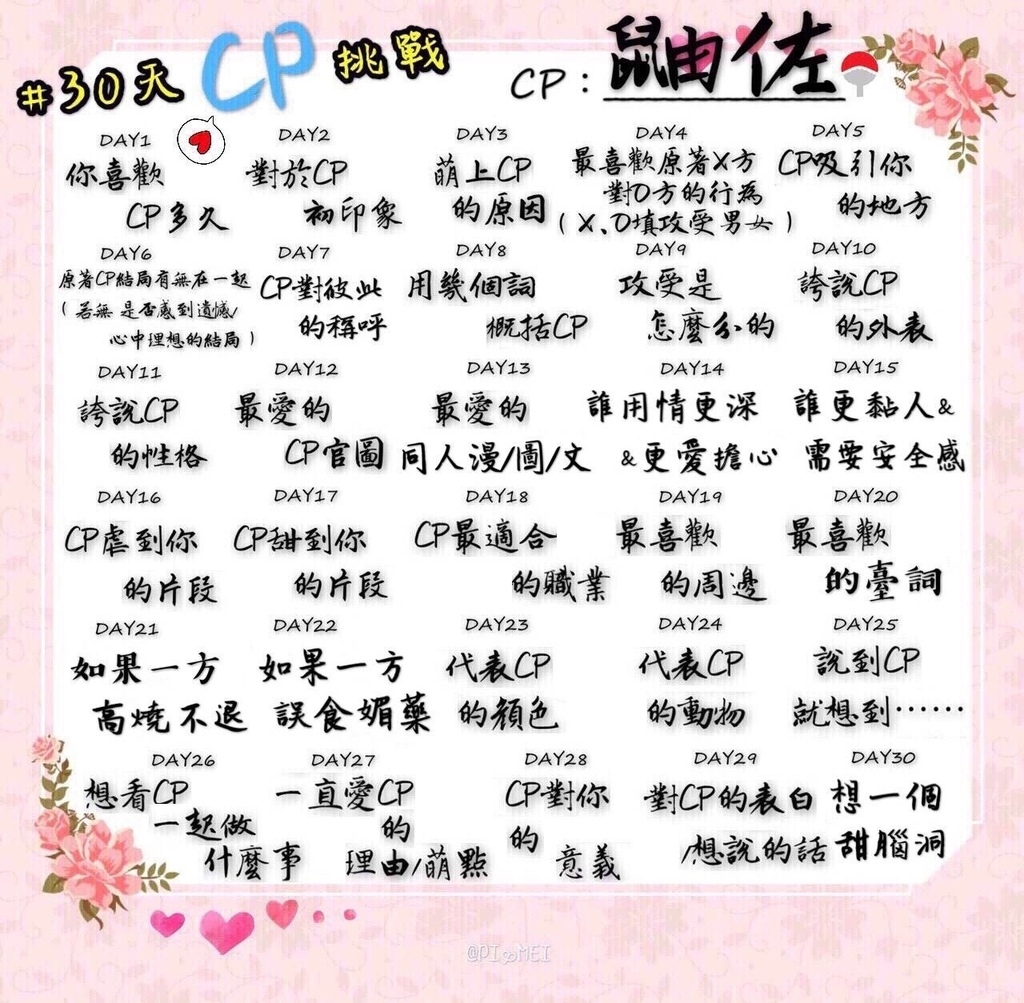 #30天CP挑戰
CP：鼬佐
DAY1
你喜歡
CP多久
DAY2
對於CP
初印象
DAY3
萌上CP
的原因
DAY4
最喜歡原著X方
對O方的行為
(X、O填攻受男女)
DAY5
CP吸引你
的地方
DAY6
原著CP結局有無在一起
(若無是否感到遺憾/
心中理想的結局)
DAY7
CP對彼此
的稱呼
DAY8
用幾個詞
概括CP
DAY9
攻受是
怎麼分的
DAY10
誇說CP
的外表
DAY11
誇說CP
的性格
DAY12
最愛的
CP官圖
DAY13
最愛的
同人漫/圖/文
DAY14
誰用情更深
&更愛擔心
DAY15
誰更黏人&
需要安全感
DAY16
CP虐到你
的片段
DAY17
CP甜到你
的片段
DAY18
CP最適合
的職業
DAY19
最喜歡
的周邊
DAY20
最喜歡
的臺詞
DAY21
如果一方
高燒不退
DAY22
如果一方
誤食媚藥
DAY23
代表CP
的顏色
DAY24
代表CP
的動物
DAY25
說到CP
就想到……
DAY26
想看CP
一起做
什麼事
DAY27
一直愛CP
的
理由/萌點
DAY28
CP對你
的
意義
DAY29
對CP的表白
/想說的話
DAY30
想一個
甜腦洞